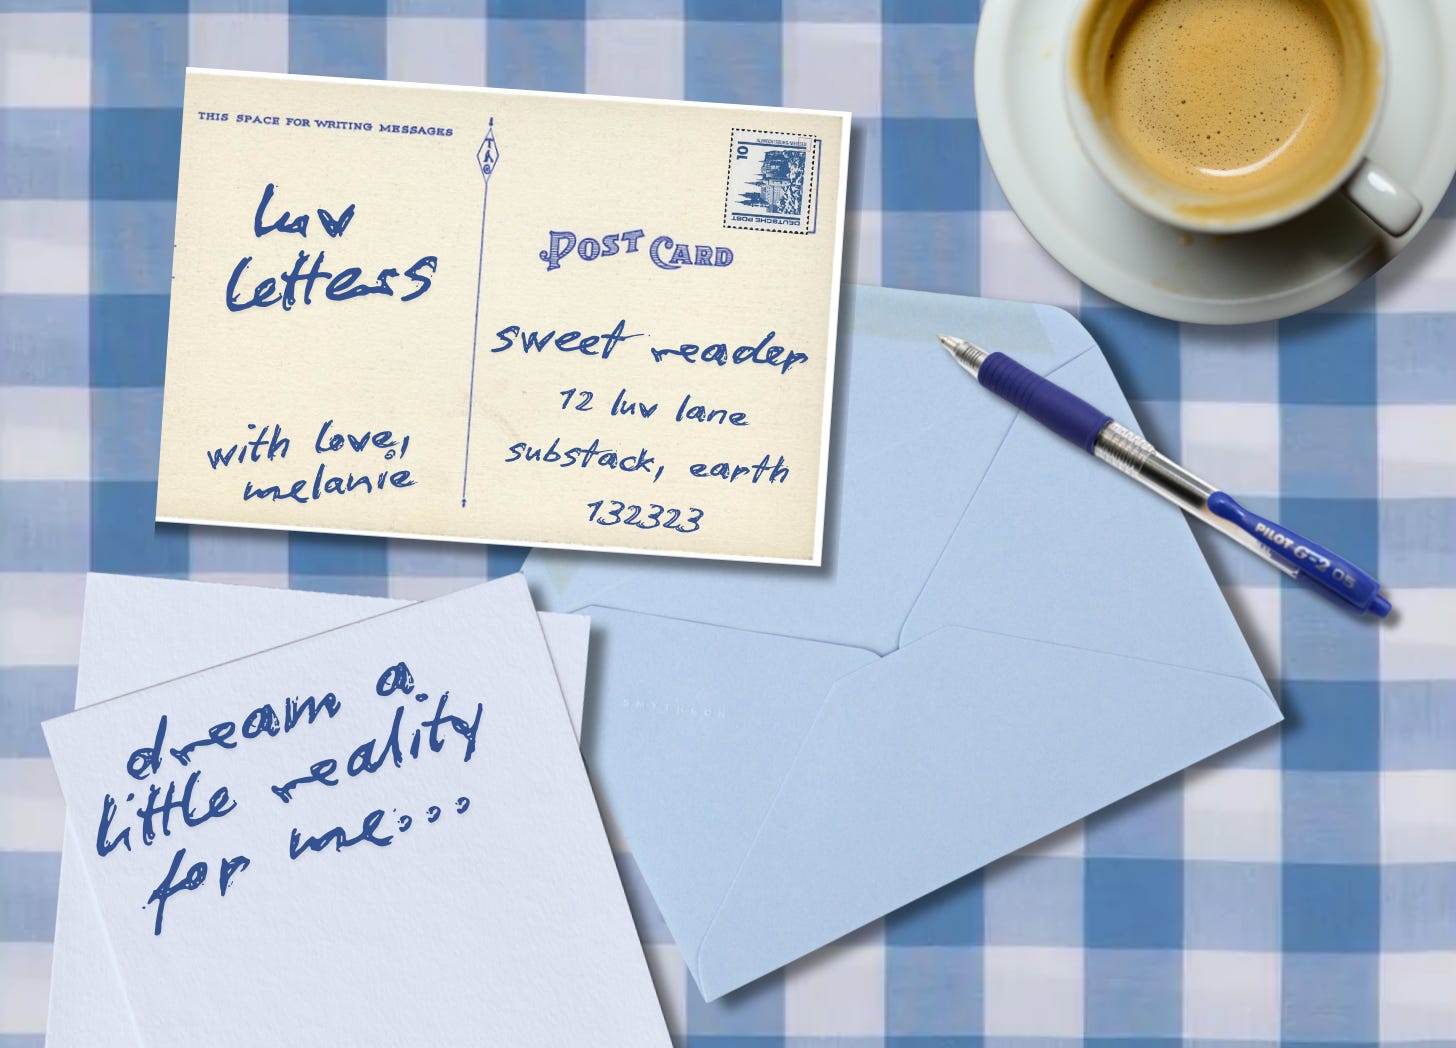 THIS SPACE FOR WRITING MESSAGES
luv
letters
with love,
melanie
10
DEUTSCHE POST
POST CARD
sweet reader
12 luv lane
substack, earth
132323
SMYTHSON
PILOT G-2 05
dream a
little reality
for me...